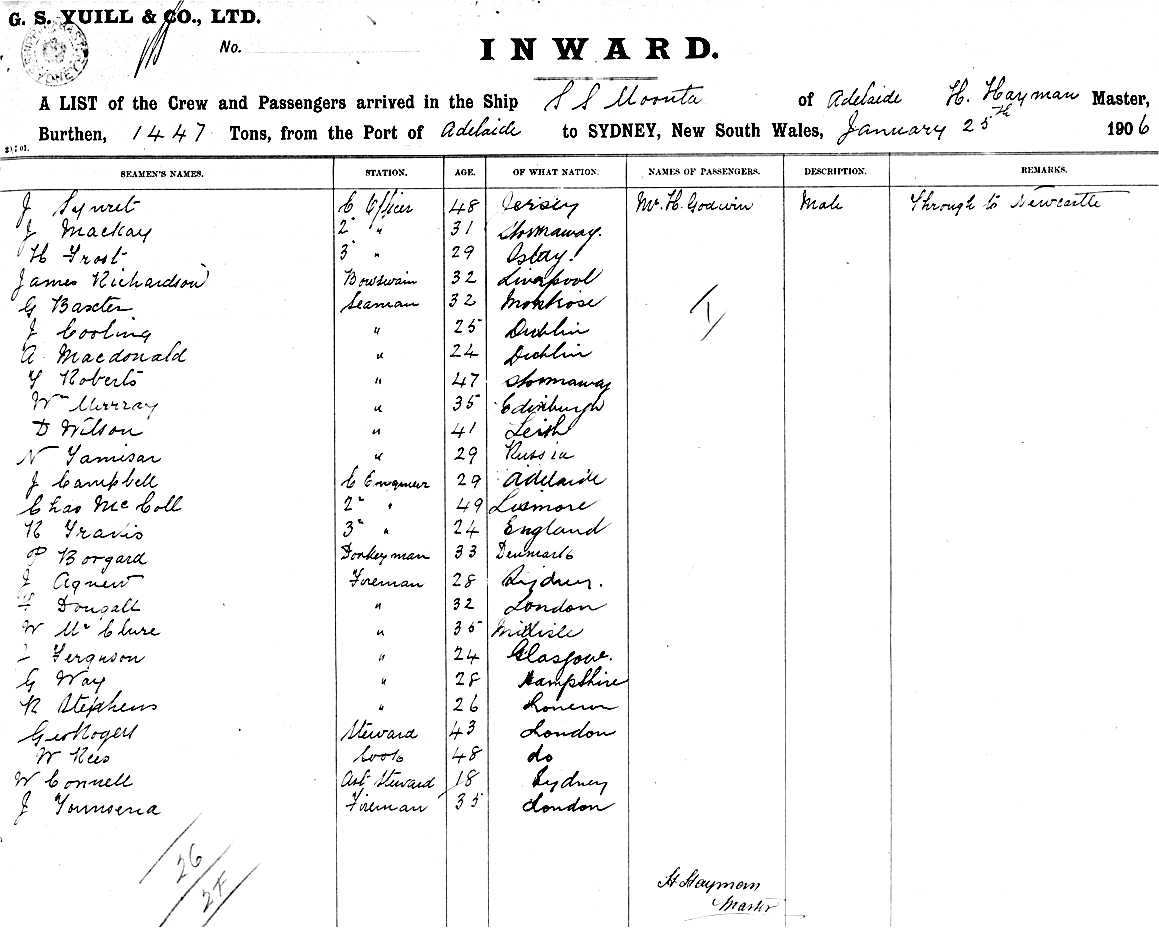 G. S. YUILL & CO., LTD.
No.
INWARD.
A LIST of the Crew and Passengers arrived in the Ship S S Moonta of Adelaide H. Hayman Master,
Burthen, 1447 Tons, from the Port of Adelaide to SYDNEY, New South Wales, January 25th 1906
SEAMEN'S NAMES. STATION. AGE. OF WHAT NATION. NAMES OF PASSENGERS. DESCRIPTION. REMARKS.
J Syvret C Officer 48 Jersey Mr. H. Godwin Male Through to Newcastle
J Mackay 2 " 31 Stornaway.
H Frost 3 " 29
James Richardson Bowswain 32 Liverpool
G Baxter Seaman 32 Montrose
J Cooling " 25 Dublin
A Macdonald " 24 Dublin
Y Roberts " 47 Stornaway
Wm Murray " 35 Edinburgh
D Wilson " 41 Leith
N Tamisar " 29 Russia
J Campbell C Engineer 29 Adelaide
Chas McColl 2" " 49 Lismore
R Travis 3" " 24 England
P Borgard Donkeyman 33 Denmark
J Agnew Fireman 28 Sydney.
Dougall " 32 London
W McClure " 35 Millisle
Ferguson " 24 Glasgow.
G Way " 28 Hampshire
R Stephens " 26
Geo Rogers Steward 43 London
W Rees Cook 48 do
W Connell Ast Steward 18 Sydney
J Townsend Fireman 35 London
1
26
27
H Hayman
Master